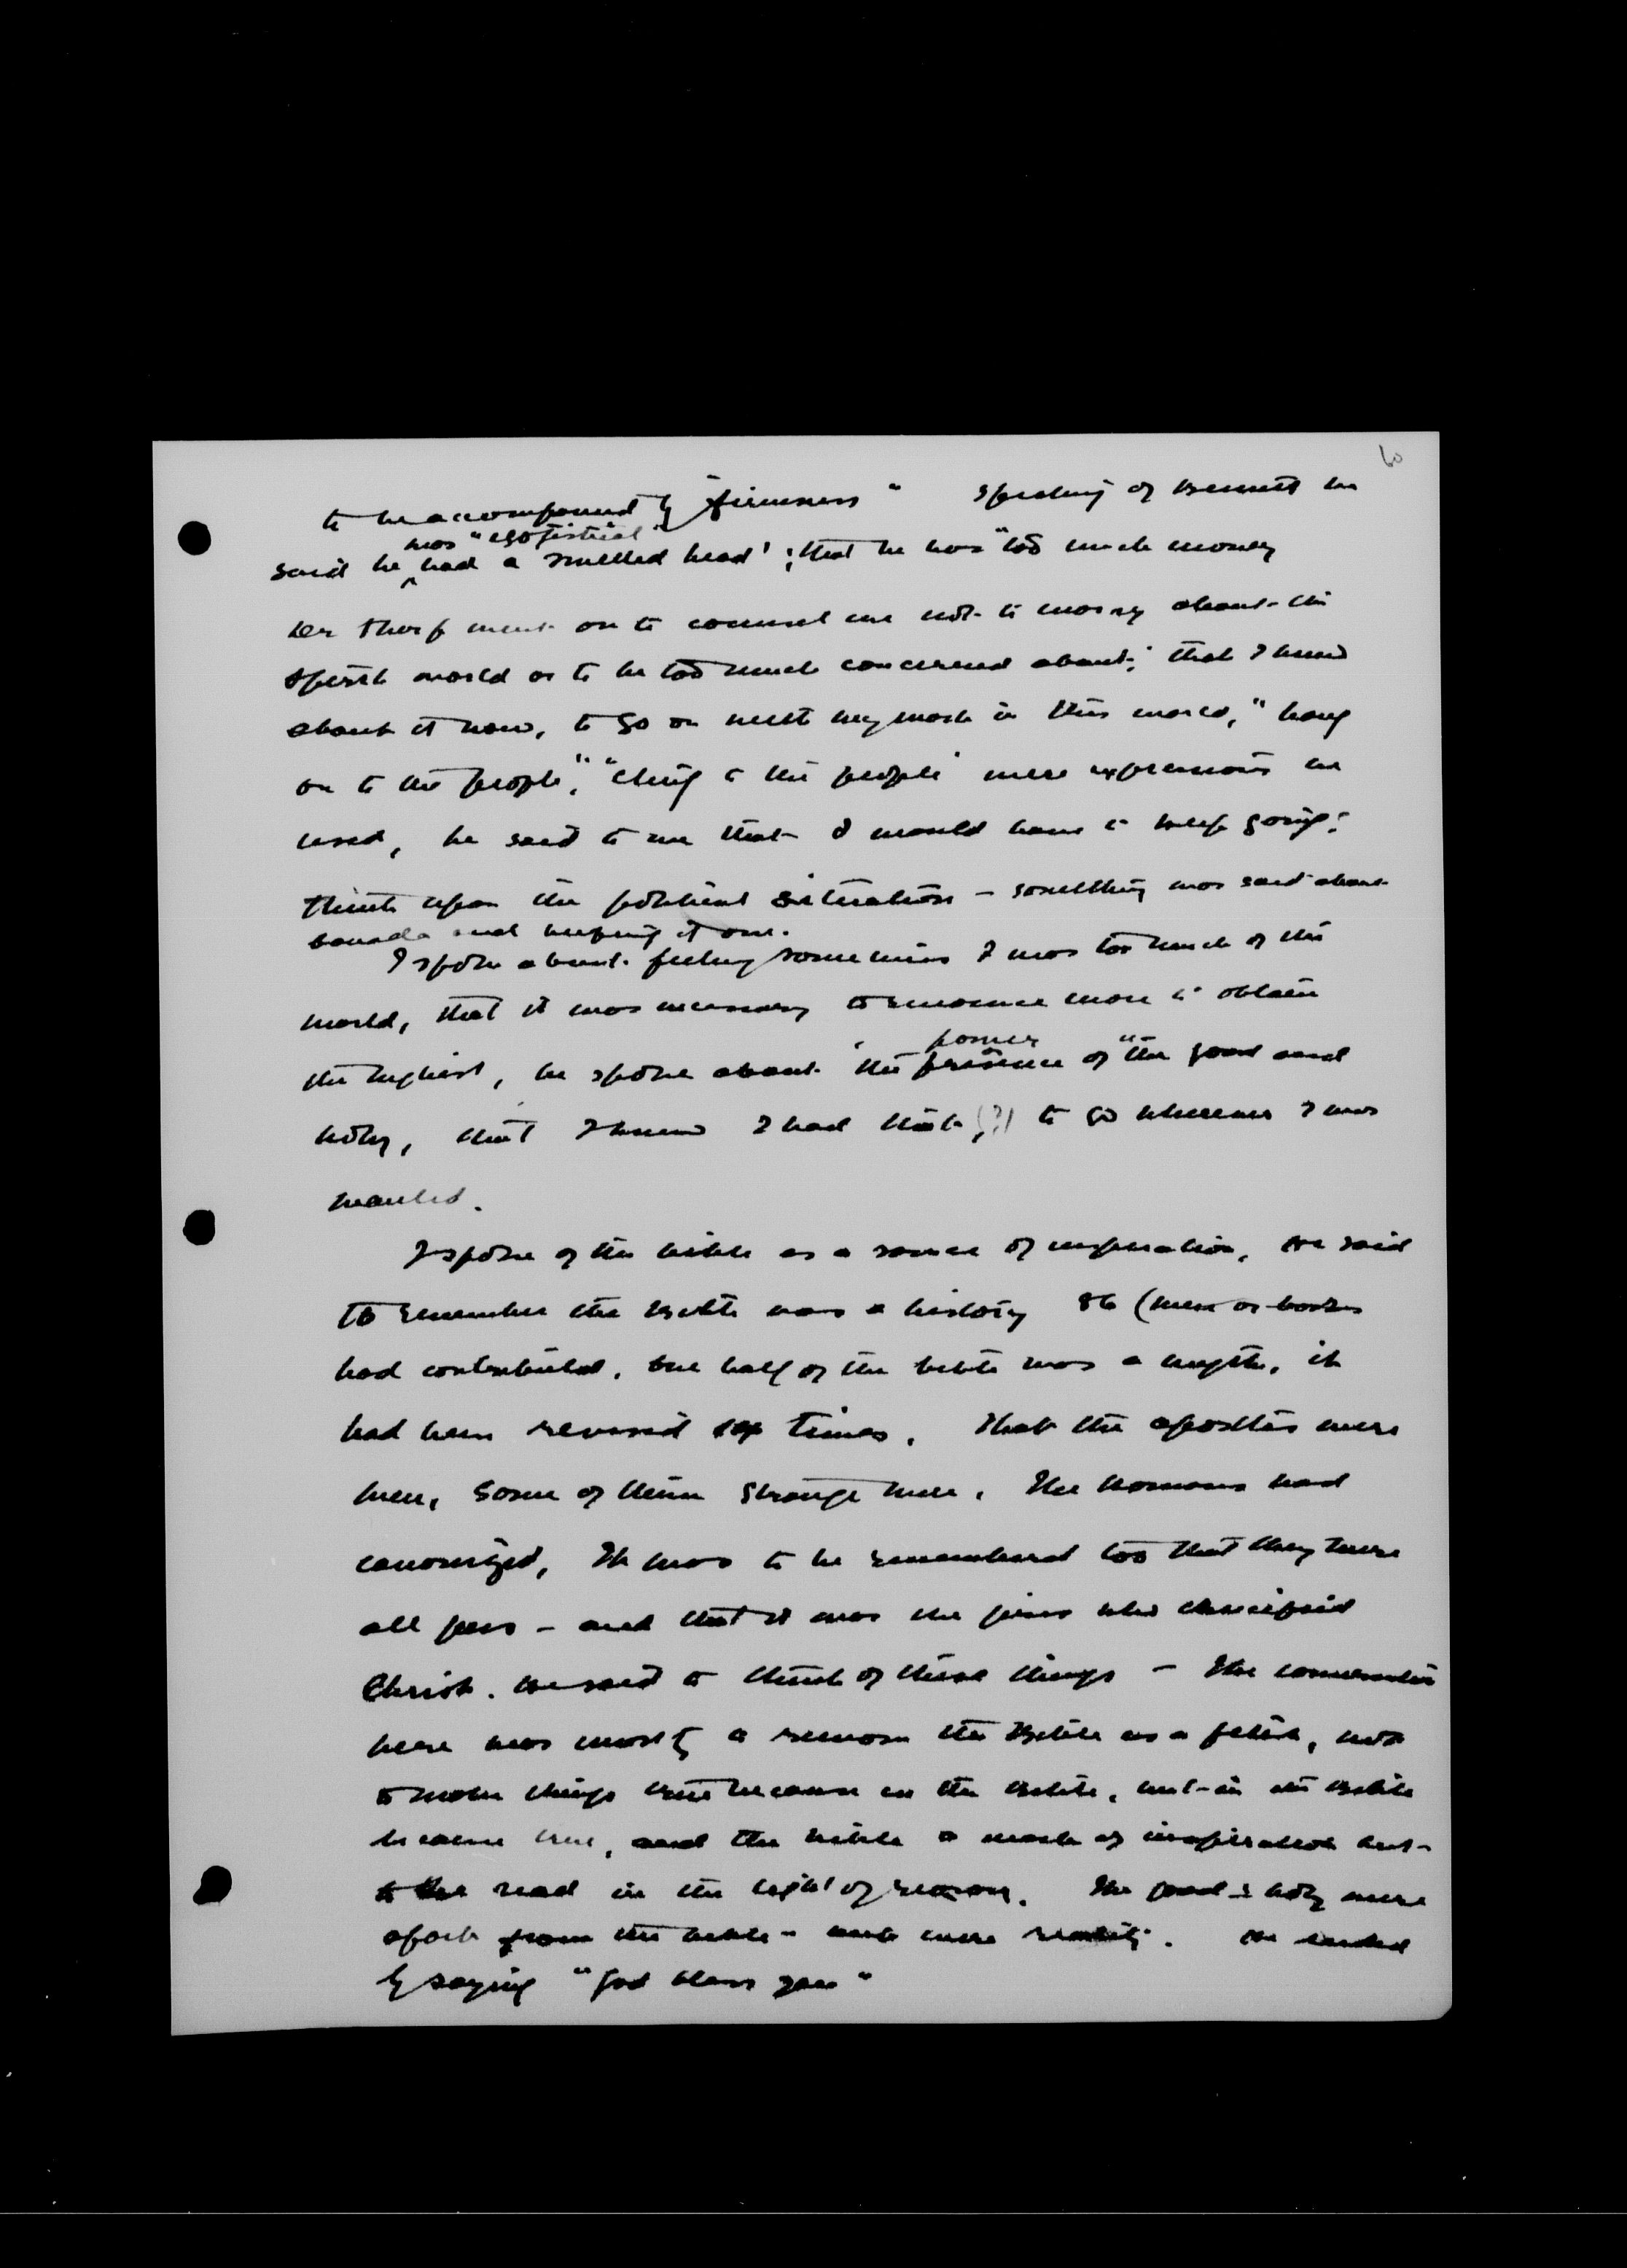 60
to be accompanied by firmness" Speaking of Bennett he
was "egotistical"
said he had a swelled head'; that he has "too much money
Dr Tharp went on to counsel me not to worry about the
spirit world or to be too much concerned about; that I knew
about it now, to go on with my work in this world, "hang
on to the people", "cling to the people" were expressions he
used, he said to me that I would have to keep going;
think upon the political situation – something was said about
Canada and keeping it one.
I spoke about feeling sometimes I was too much of this
world, that it was necessary to renounce more to obtain
power
the highest, he spoke about the presence of "the good and
holy, that I knew I had that, (?) to go wherever I was
wanted.
I spoke of the bible as a source of inspiration, He said
to remember the Bible was a history 86 (men or books
had contributed. One half of the bible was a myth, it
had been revised times. That the apostles were
men, some of them strange men. The Romans had
canonized, It was to be remembered too that they were
all jews – and that it was the jews who crucified
Christ. He said to think of these things – The conversation
here was mostly to remove the Bible as a fetish, not
to make things true because in the Bible, but in the Bible
because true, and the bible a work of inspiration but
to be read in the light of reason. The good & holy were
apart from the bible – and were reality. He ended
by saying "God bless you"